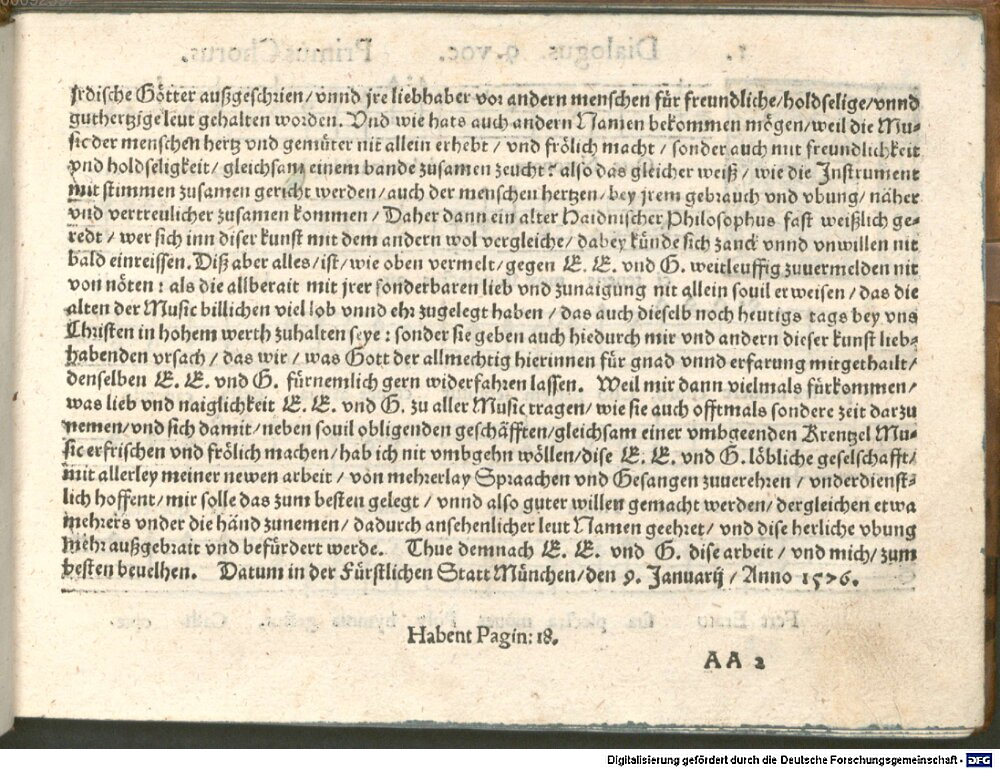 Jrdische Götter außgeschrien/vnnd jre liebhaber vor andern menschen für freundliche/holdselige/vnnd
guthertzige leut gehalten worden. Vnd wie hats auch andern Namen bekommen mögen/weil die Mu-
sic der menschen hertz vnd gemüter nit allein erhebt/ vnd frölich macht/ sonder auch mit freundlichkeit
vnd holdseligkeit/ gleichsam einem bande zusamen zeucht: also das gleicher weiß/ wie die Instrument
mit stimmen zusamen gericht werden/auch der menschen hertzen/bey jrem gebrauch vnd vbung/ näher
vnd vertreulicher zusamen kommen/ Daher dann ein alter Haidnischer Philosophus fast weißlich ge-
redt/ wer sich inn diser kunst mit dem andern wol vergleiche/ dabey künde sich zanck vnnd vnwillen nit
bald einreissen. Diß aber alles/ist/wie oben vermelt/gegen E. E. vnd G. weitleuffig zuuermelden nit
von nöten: als die allberait mit jrer sonderbaren lieb vnd zunaigung nit allein souil erweisen/das die
alten der Music billichen viel lob vnnd ehr zugelegt haben/das auch dieselb noch heutigs tags bey vns
Christen in hohem werth zuhalten seye: sonder sie geben auch hiedurch mir vnd andern dieser kunst lieb-
habenden vrsach/das wir/was Gott der allmechtig hierinnen für gnad vnnd erfarung mitgethailt/
denselben E. E. vnd G. fürnemlich gern widerfahren lassen. Weil mir dann vielmals fürkommen/
was lieb vnd naiglichkeit E. E. vnd G. zu aller Music tragen/wie sie auch offtmals sondere zeit darzu
nemen/vnd sich damit/neben souil obligenden geschäfften/gleichsam einer vmbgeenden Krentzel Mu-
sic erfrischen vnd frölich machen/hab ich nit vmbgehn wöllen/dise E. E. vnd G. löbliche geselschafft/
mit allerley meiner newen arbeit/von mehrerlay Spraachen vnd Gesangen zuuerehren/vnderdienst-
lich hoffent/mir solle das zum besten gelegt/vnnd also guter willen gemacht werden/dergleichen etwa
mehrers vnder die händ zunemen/dadurch ansehenlicher leut Namen geehret/vnd dise herliche vbung
mehr außgebrait vnd befürdert werde. Thue demnach E. E. vnd G. dise arbeit/vnd mich/zum
besten beuelhen. Datum in der Fürstlichen Statt München/den 9. Januarij/Anno 1576.
Habent Pagin: 18.
AA 2
Digitalisierung gefördert durch die Deutsche Forschungsgemeinschaft - DFG